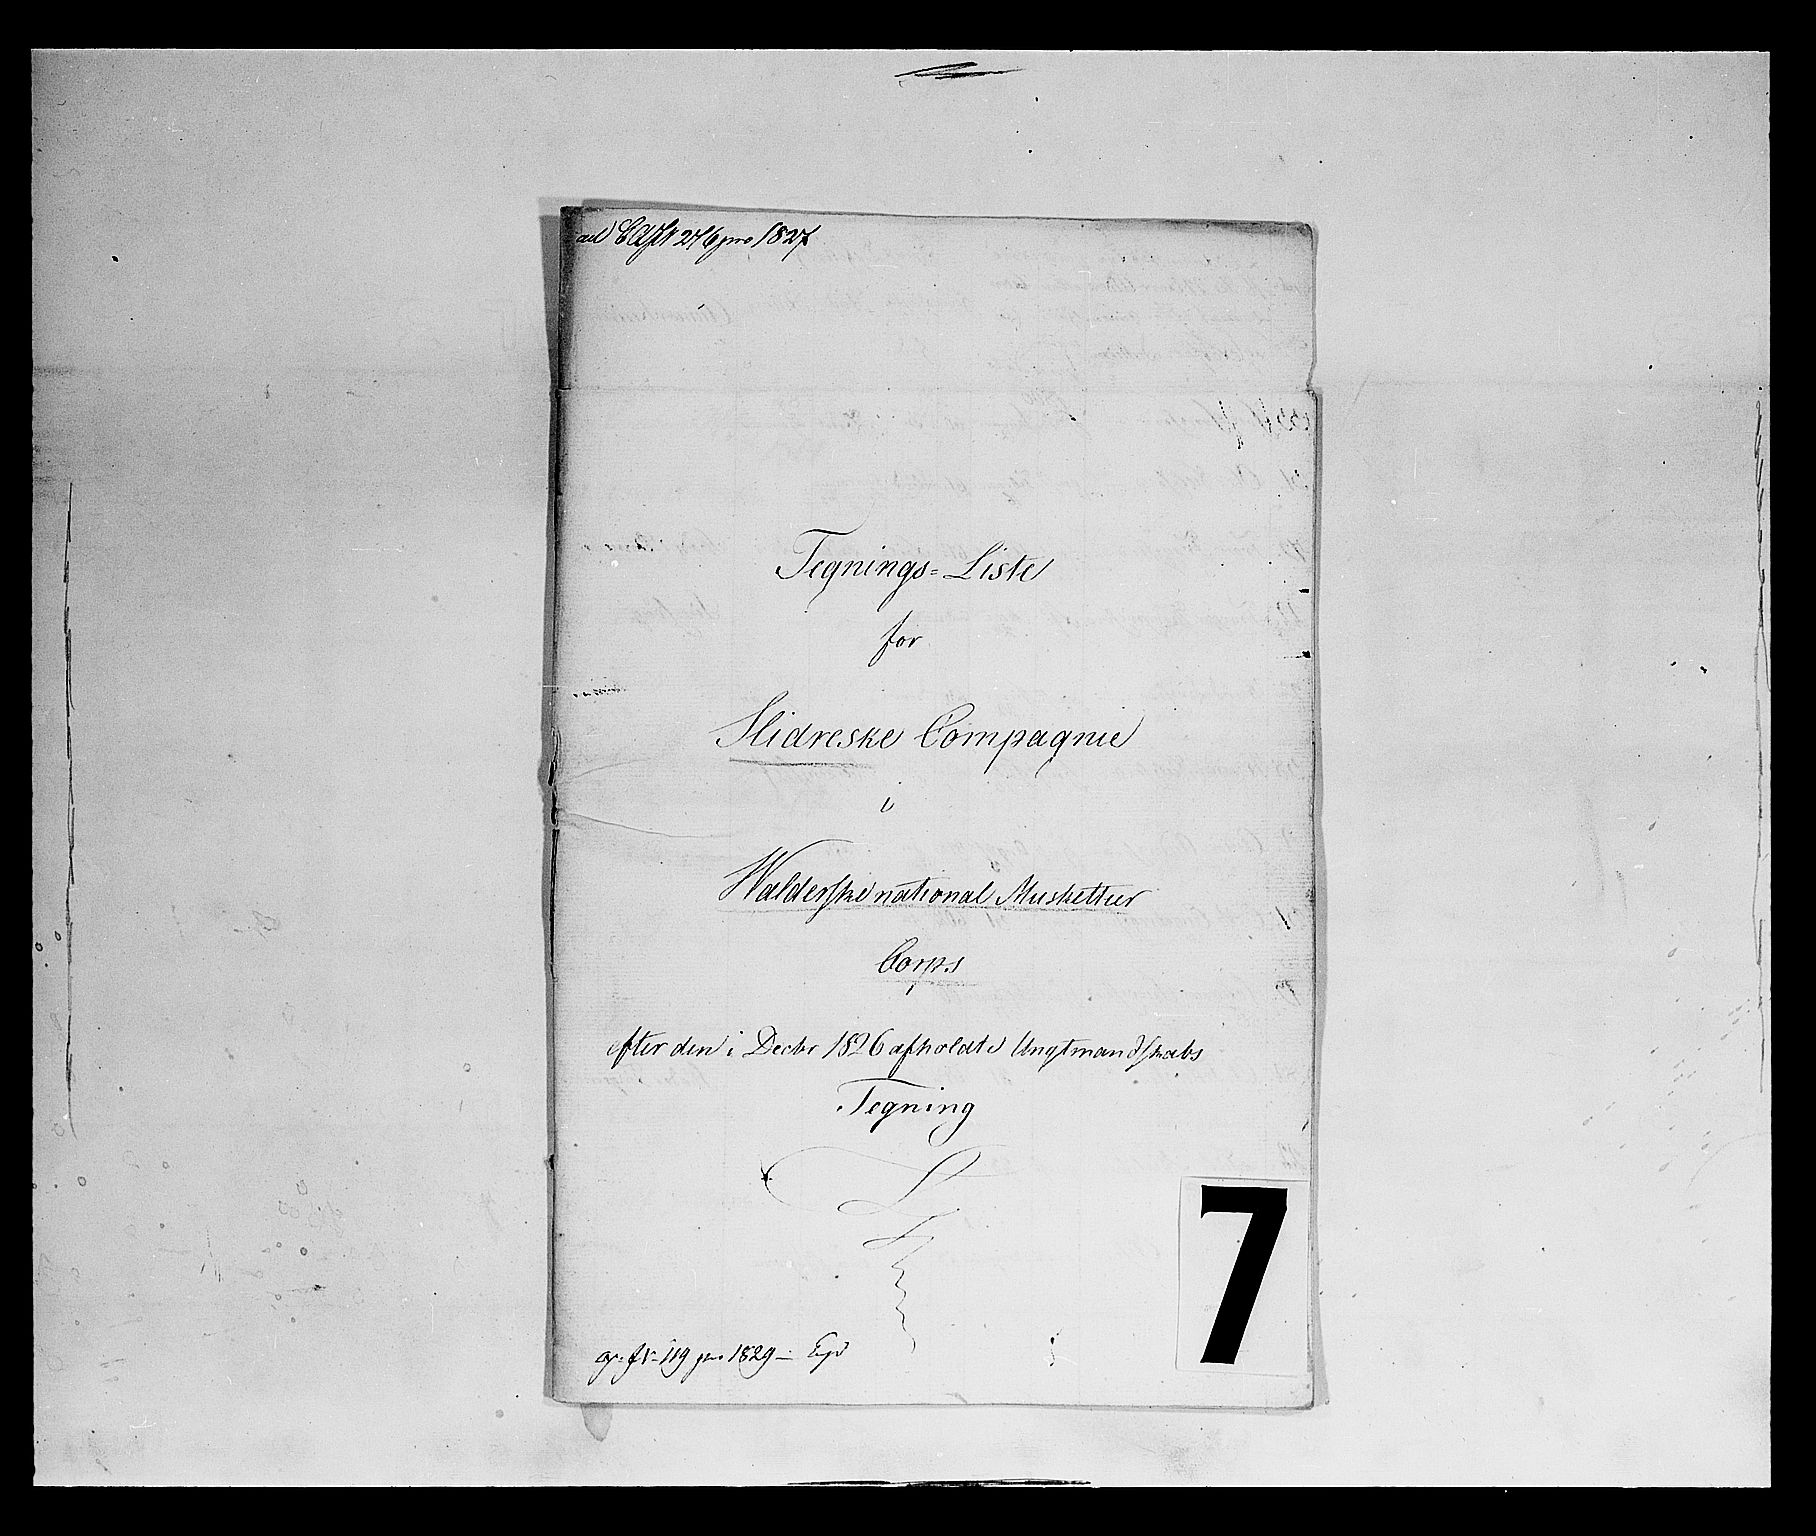 ad 276 pro 1827
Tegnings=Liste
for
Slidreske Compagnie
i
Walderske national Musketteer
Corps
efter den i Decbr 1826 afholdte Ungtmandskabs
Tegning
7
119 pro 1829